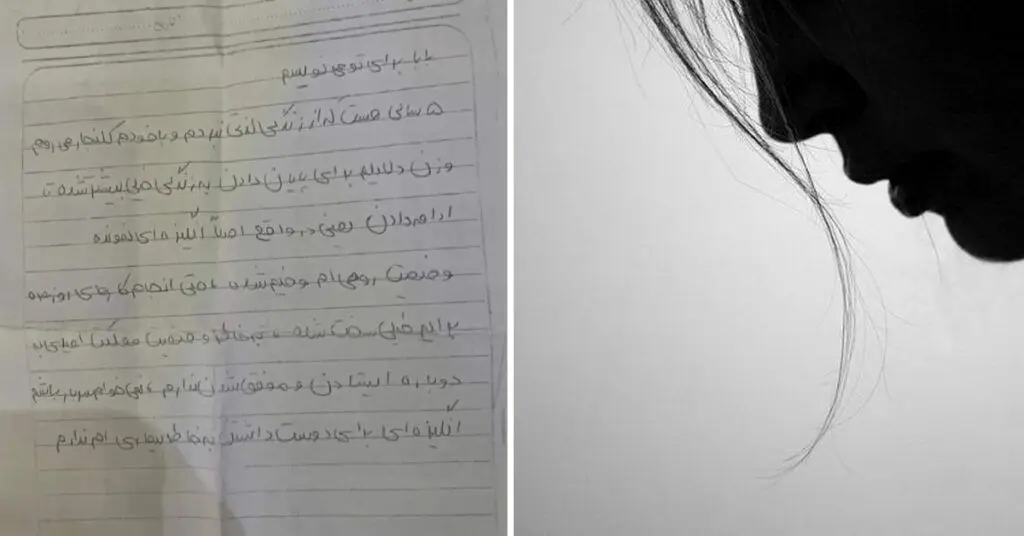 بابا برای تو می نویسم
۵ سالی هست که از زندگی لذتی نبردم و با خودم کلنجار می روم
وزن دلایلم برای پایان دادن به زندگی خیلی بیشتر شده تا
ادامه دادن یعنی در واقع اصلاً انگیزه ای نمونده
وضعیت روحی ام وخیم شده، حتی انجام کارهای روزمره
برایم خیلی سخت شده، به خاطر وضعیت مملکت امیدی به
دوباره ایستادن و موفق شدن ندارم، نمی خوام سربار باشم
انگیزه ای برای دوست داشتن به خاطر بیماری ام ندارم